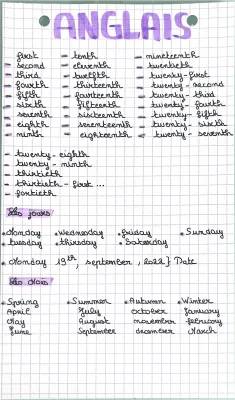 ANGLAIS
first - tenth - nineteenth
- second - eleventh - twentieth
- third - twelfth - twenty-first
- fourth - thirteenth - twenty-second
- fifth - fourteenth - twenty-third
- sixth - fifteenth - twenty-fourth
- seventh - sixteenth - twenty-fifth
- eighth - seventeenth - twenty-sixth
- ninth - eighteenth - twenty-seventh
- twenty-eighth
- twenty-ninth
- thirtieth
- thirtieth-first ...
- fortieth
Les jours
• Monday • Wednesday • friday • Sunday
• tuesday • thursday • Saturday
• Monday 19th, september, 2022 } Date
Les Mois
• Spring • Summer • Autumn • Winter
April July October January
May August november february
June September december March